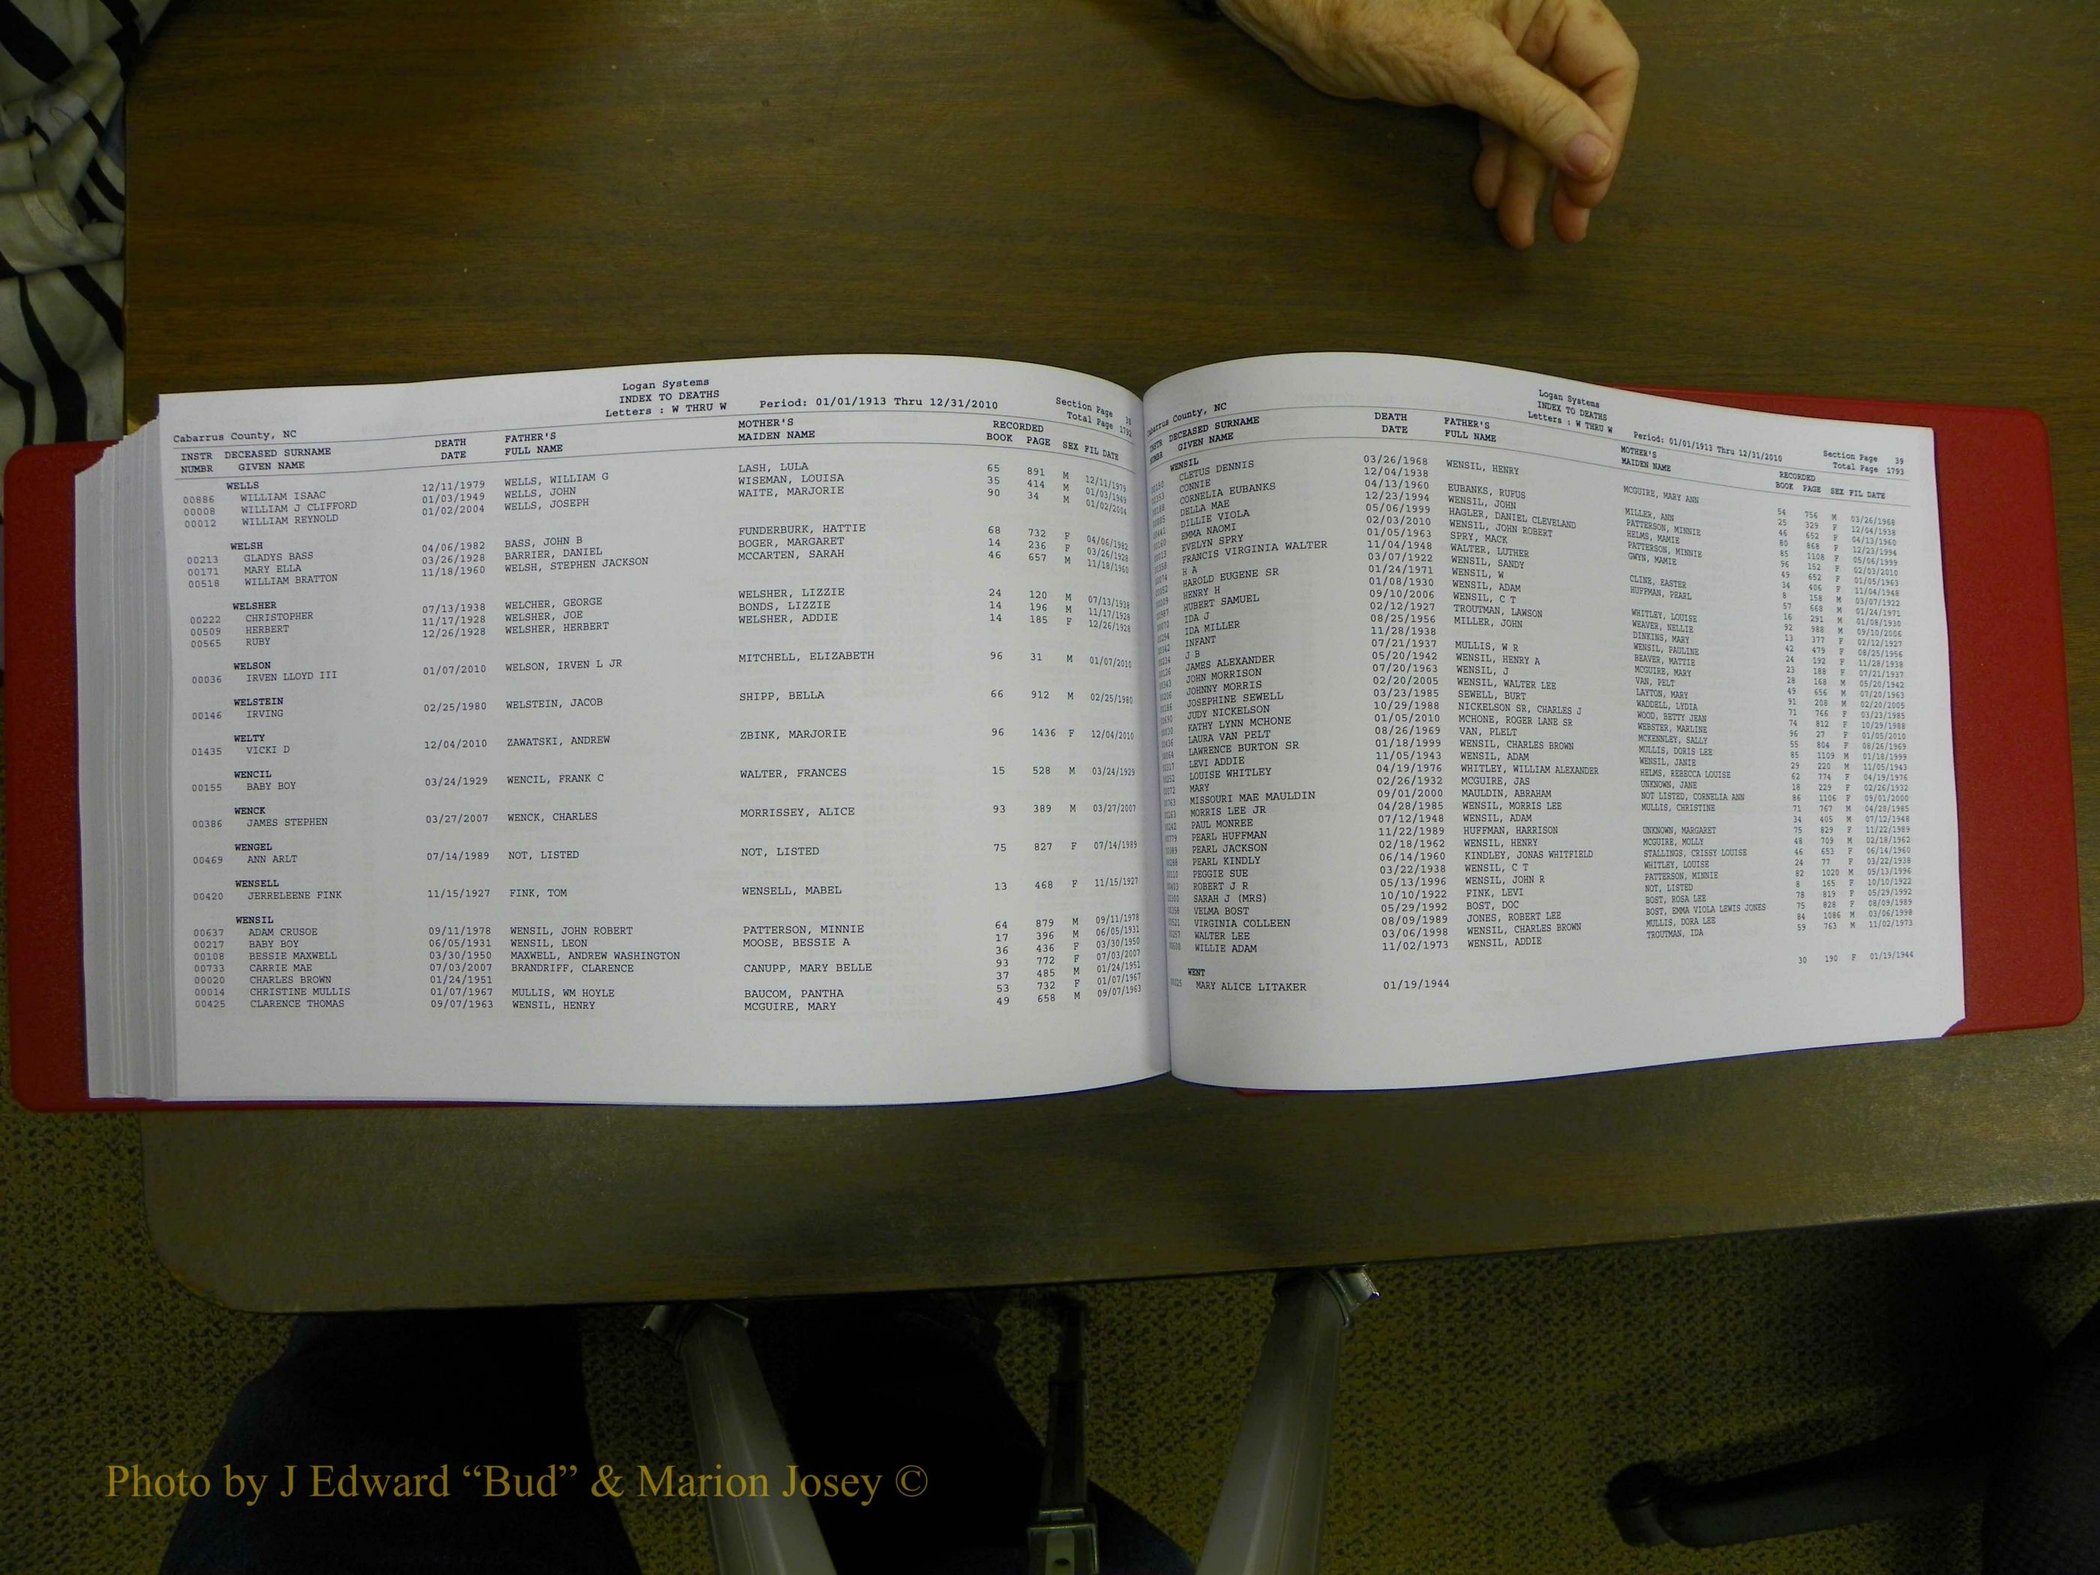 Logan Systems
INDEX TO DEATHS
Letters : W THRU W Period: 01/01/1913 Thru 12/31/2010 Section Page 38
Total Page 1792
Cabarrus County, NC
INSTR DECEASED SURNAME DEATH FATHER'S MOTHER'S RECORDED
NUMBR GIVEN NAME DATE FULL NAME MAIDEN NAME BOOK PAGE SEX FIL DATE
WELLS
00886 WILLIAM ISAAC 12/11/1979 WELLS, WILLIAM G LASH, LULA 65 891 M 12/11/1979
00008 WILLIAM J CLIFFORD 01/03/1949 WELLS, JOHN WISEMAN, LOUISA 35 414 M 01/03/1949
00012 WILLIAM REYNOLD 01/02/2004 WELLS, JOSEPH WAITE, MARJORIE 90 34 M 01/02/2004
WELSH
00213 GLADYS BASS 04/06/1982 BASS, JOHN B FUNDERBURK, HATTIE 68 732 F 04/06/1982
00171 MARY ELLA 03/26/1928 BARRIER, DANIEL BOGER, MARGARET 14 236 F 03/26/1928
00518 WILLIAM BRATTON 11/18/1960 WELSH, STEPHEN JACKSON MCCARTEN, SARAH 46 657 M 11/18/1960
WELSHER
00222 CHRISTOPHER 07/13/1938 WELCHER, GEORGE WELSHER, LIZZIE 24 120 M 07/13/1938
00509 HERBERT 11/17/1928 WELSHER, JOE BONDS, LIZZIE 14 196 M 11/17/1928
00565 RUBY 12/26/1928 WELSHER, HERBERT WELSHER, ADDIE 14 185 F 12/26/1928
WELSON
00036 IRVEN LLOYD III 01/07/2010 WELSON, IRVEN L JR MITCHELL, ELIZABETH 96 31 M 01/07/2010
WELSTEIN
00146 IRVING 02/25/1980 WELSTEIN, JACOB SHIPP, BELLA 66 912 M 02/25/1980
WELTY
01435 VICKI D 12/04/2010 ZAWATSKI, ANDREW ZBINK, MARJORIE 96 1436 F 12/04/2010
WENCIL
00155 BABY BOY 03/24/1929 WENCIL, FRANK C WALTER, FRANCES 15 528 M 03/24/1929
WENCK
00386 JAMES STEPHEN 03/27/2007 WENCK, CHARLES MORRISSEY, ALICE 93 389 M 03/27/2007
WENGEL
00469 ANN ARLT 07/14/1989 NOT, LISTED NOT, LISTED 75 827 F 07/14/1989
WENSELL
00420 JERRELEENE FINK 11/15/1927 FINK, TOM WENSELL, MABEL 13 468 F 11/15/1927
WENSIL
00637 ADAM CRUSOE 09/11/1978 WENSIL, JOHN ROBERT PATTERSON, MINNIE 64 879 M 09/11/1978
00217 BABY BOY 06/05/1931 WENSIL, LEON MOOSE, BESSIE A 17 396 M 06/05/1931
00108 BESSIE MAXWELL 03/30/1950 MAXWELL, ANDREW WASHINGTON 36 436 F 03/30/1950
00733 CARRIE MAE 07/03/2007 BRANDRIFF, CLARENCE CANUPP, MARY BELLE 93 772 F 07/03/2007
00020 CHARLES BROWN 01/24/1951 37 485 M 01/24/1951
00014 CHRISTINE MULLIS 01/07/1967 MULLIS, WM HOYLE BAUCOM, PANTHA 53 732 F 01/07/1967
00425 CLARENCE THOMAS 09/07/1963 WENSIL, HENRY MCGUIRE, MARY 49 658 M 09/07/1963
Logan Systems
INDEX TO DEATHS
Letters : W THRU W Period: 01/01/1913 Thru 12/31/2010 Section Page 39
Total Page 1793
Cabarrus County, NC
INSTR DECEASED SURNAME DEATH FATHER'S MOTHER'S RECORDED
NUMBR GIVEN NAME DATE FULL NAME MAIDEN NAME BOOK PAGE SEX FIL DATE
WENSIL
CLETUS DENNIS 03/26/1968 WENSIL, HENRY MCGUIRE, MARY ANN 54 756 M 03/26/1968
CONNIE 12/04/1938 25 329 F 12/04/1938
CORNELIA EUBANKS 04/13/1960 EUBANKS, RUFUS MILLER, ANN 46 652 F 04/13/1960
DELLA MAE 12/23/1994 WENSIL, JOHN PATTERSON, MINNIE 80 868 F 12/23/1994
DILLIE VIOLA 05/06/1999 HAGLER, DANIEL CLEVELAND HELMS, MAMIE 85 1108 F 05/06/1999
EMMA NAOMI 02/03/2010 WENSIL, JOHN ROBERT PATTERSON, MINNIE 96 152 F 02/03/2010
EVELYN SPRY 01/05/1963 SPRY, MACK GWYN, MAMIE 49 652 F 01/05/1963
FRANCIS VIRGINIA WALTER 11/04/1948 WALTER, LUTHER 34 406 F 11/04/1948
H A 03/07/1922 WENSIL, SANDY CLINE, EASTER 8 158 M 03/07/1922
HAROLD EUGENE SR 01/24/1971 WENSIL, W HUFFMAN, PEARL 57 668 M 01/24/1971
HENRY H 01/08/1930 WENSIL, ADAM 16 291 M 01/08/1930
HUBERT SAMUEL 09/10/2006 WENSIL, C T WHITLEY, LOUISE 92 988 M 09/10/2006
IDA J 02/12/1927 TROUTMAN, LAWSON WEAVER, NELLIE 13 377 F 02/12/1927
IDA MILLER 08/25/1956 MILLER, JOHN DINKINS, MARY 42 479 F 08/25/1956
INFANT 11/28/1938 WENSIL, PAULINE 24 192 F 11/28/1938
J B 07/21/1937 MULLIS, W R BEAVER, MATTIE 23 188 F 07/21/1937
JAMES ALEXANDER 05/20/1942 WENSIL, HENRY A MCGUIRE, MARY 28 168 M 05/20/1942
JOHN MORRISON 07/20/1963 WENSIL, J VAN, PELT 49 656 M 07/20/1963
JOHNNY MORRIS 02/20/2005 WENSIL, WALTER LEE LAYTON, MARY 91 208 M 02/20/2005
JOSEPHINE SEWELL 03/23/1985 SEWELL, BURT WADDELL, LYDIA 71 766 F 03/23/1985
JUDY NICKELSON 10/29/1988 NICKELSON SR, CHARLES J WOOD, BETTY JEAN 74 812 F 10/29/1988
KATHY LYNN MCHONE 01/05/2010 MCHONE, ROGER LANE SR WEBSTER, MARLINE 96 27 F 01/05/2010
LAURA VAN PELT 08/26/1969 VAN, PLELT MCKENNLEY, SALLY 55 804 F 08/26/1969
LAWRENCE BURTON SR 01/18/1999 WENSIL, CHARLES BROWN MULLIS, DORIS LEE 85 1109 M 01/18/1999
LEVI ADDIE 11/05/1943 WENSIL, ADAM WENSIL, JANIE 29 220 M 11/05/1943
LOUISE WHITLEY 04/19/1976 WHITLEY, WILLIAM ALEXANDER HELMS, REBECCA LOUISE 62 774 F 04/19/1976
MARY 02/26/1932 MCGUIRE, JAS UNKNOWN, JANE 18 229 F 02/26/1932
MISSOURI MAE MAULDIN 09/01/2000 MAULDIN, ABRAHAM NOT LISTED, CORNELIA ANN 86 1106 F 09/01/2000
MORRIS LEE JR 04/28/1985 WENSIL, MORRIS LEE MULLIS, CHRISTINE 71 767 M 04/28/1985
PAUL MONREE 07/12/1948 WENSIL, ADAM 34 405 M 07/12/1948
PEARL HUFFMAN 11/22/1989 HUFFMAN, HARRISON UNKNOWN, MARGARET 75 829 F 11/22/1989
PEARL JACKSON 02/18/1962 WENSIL, HENRY MCGUIRE, MOLLY 48 709 M 02/18/1962
PEARL KINDLY 06/14/1960 KINDLEY, JONAS WHITFIELD STALLINGS, CRISSY LOUISE 46 653 F 06/14/1960
PEGGIE SUE 03/22/1938 WENSIL, C T WHITLEY, LOUISE 24 77 F 03/22/1938
ROBERT J R 05/13/1996 WENSIL, JOHN R PATTERSON, MINNIE 82 1020 M 05/13/1996
SARAH J (MRS) 10/10/1922 FINK, LEVI NOT, LISTED 8 165 F 10/10/1922
VELMA BOST 05/29/1992 BOST, DOC BOST, ROSA LEE 78 819 F 05/29/1992
VIRGINIA COLLEEN 08/09/1989 JONES, ROBERT LEE BOST, EMMA VIOLA LEWIS JONES 75 828 F 08/09/1989
WALTER LEE 03/06/1998 WENSIL, CHARLES BROWN MULLIS, DORA LEE 84 1086 M 03/06/1998
WILLIE ADAM 11/02/1973 WENSIL, ADDIE TROUTMAN, IDA 59 763 M 11/02/1973
WENT
MARY ALICE LITAKER 01/19/1944 30 190 F 01/19/1944
Photo by J Edward “Bud” & Marion Josey ©